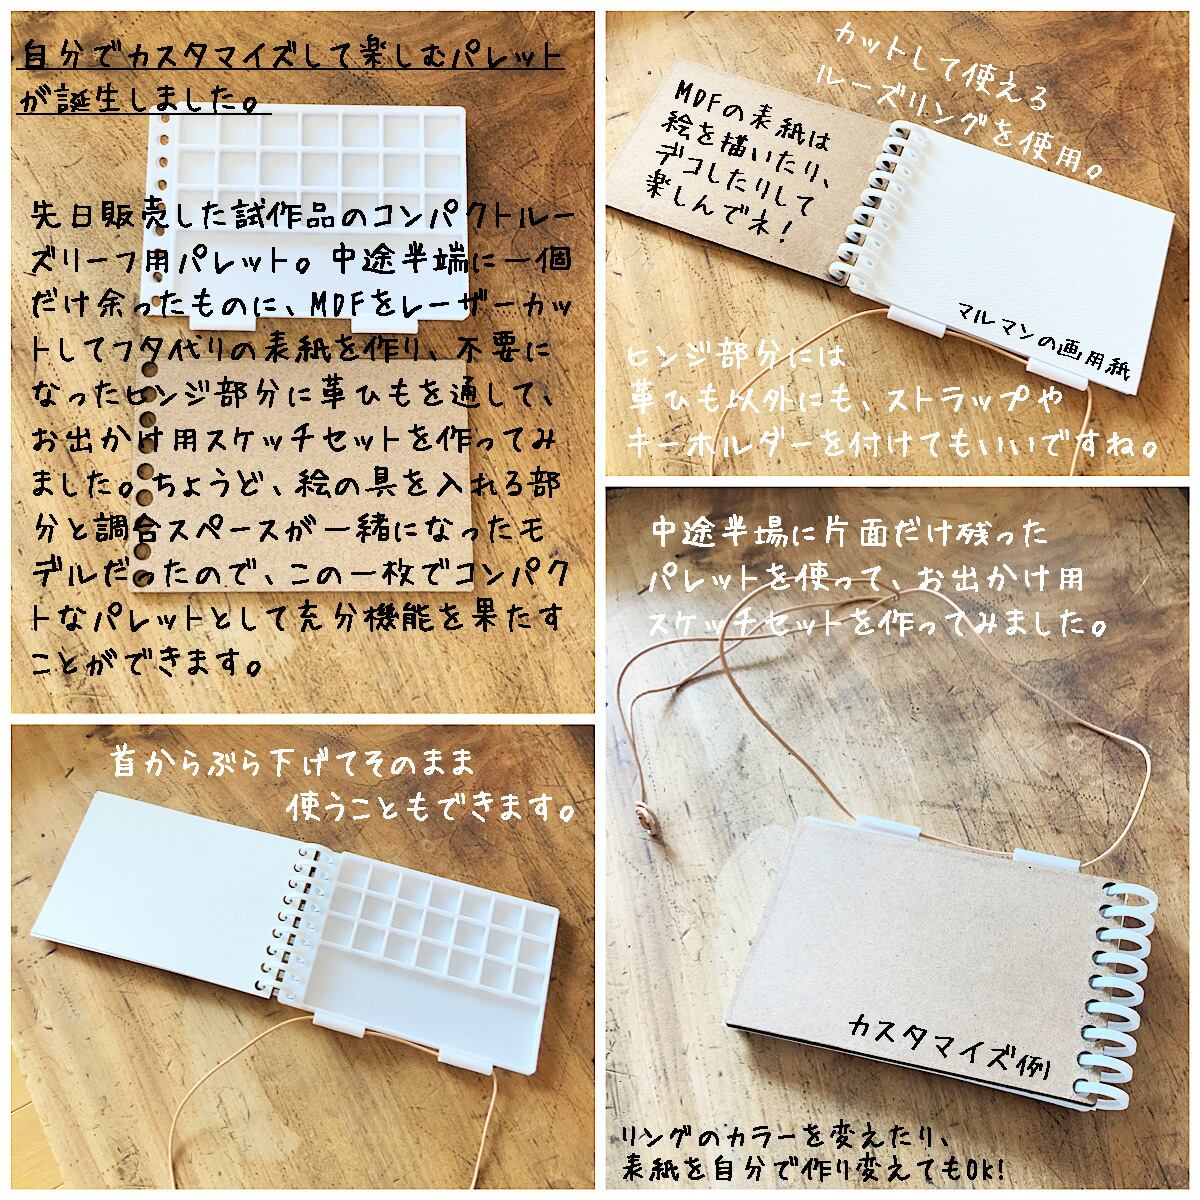 自分でカスタマイズして楽しむパレット
が誕生しました。
先日販売した試作品のコンパクトルー
ズリーフ用パレット。中途半端に一個
だけ余ったものに、MDFをレーザーカッ
トしてフタ代りの表紙を作り、不要に
なったヒンジ部分に革ひもを通して、
お出かけ用スケッチセットを作ってみ
ました。ちょうど、絵の具を入れる部
分と調合スペースが一緒になったモ
デルだったので、この一枚でコンパク
トなパレットとして充分機能を果たす
ことができます。
カットして使える
ルーズリングを使用。
MDFの表紙は
絵を描いたり、
デコしたりして
楽しんでネ!
マルマンの画用紙
ヒンジ部分には
革ひも以外にも、ストラップや
キーホルダーを付けてもいいですね。
首からぶら下げてそのまま
使うこともできます。
中途半場に片面だけ残った
パレットを使って、お出かけ用
スケッチセットを作ってみました。
カスタマイズ例
リングのカラーを変えたり、
表紙を自分で作り変えてもOK!